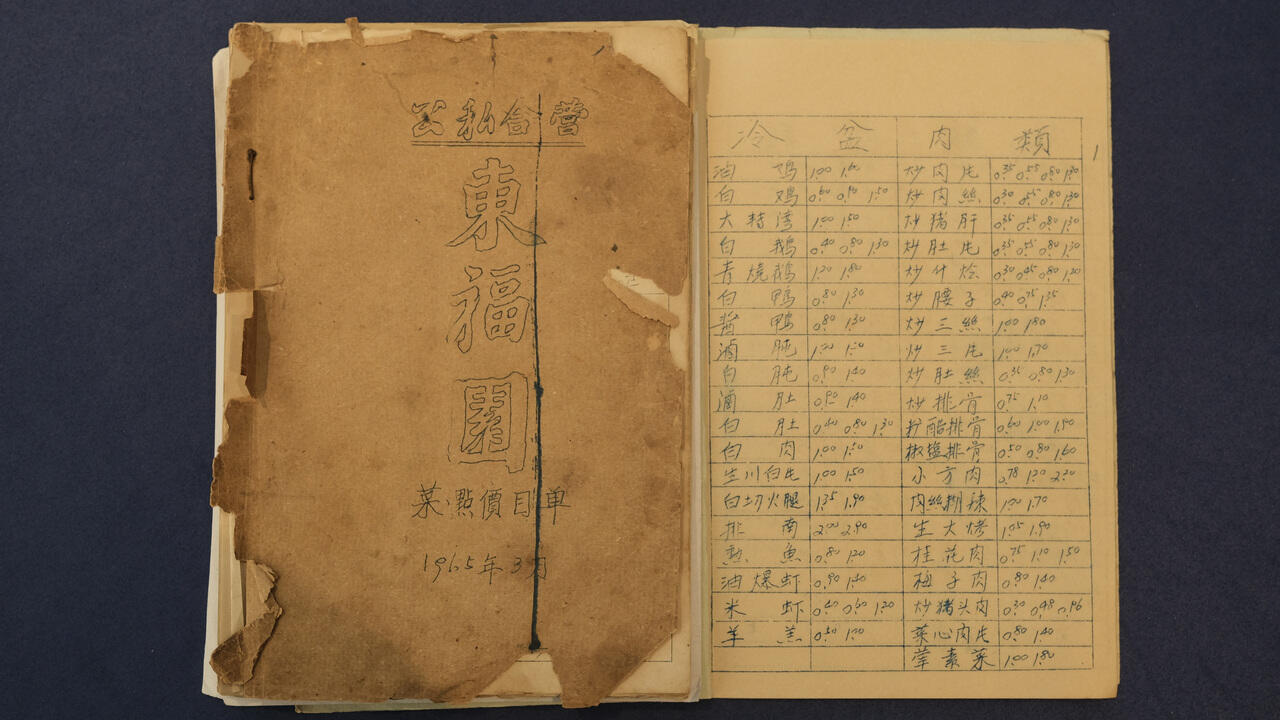 公私合营
東
福
園
菜點價目单
1965年3月
冷盆 肉類 1
油鸡 1.00 1.60 炒肉片 0.35 0.55 0.80 1.30
白鸡 0.60 0.90 1.50 炒肉絲 0.30 0.55 0.80 1.30
大转湾 1.00 1.50 炒猪肝 0.35 0.55 0.80 1.30
白鹅 0.40 0.80 1.30 炒肚片 0.35 0.55 0.80 1.30
青燒鹅 1.20 1.80 炒什烩 0.30 0.45 0.80 1.20
白鸭 0.80 1.30 炒腰子 0.40 0.75 1.35
酱鸭 0.80 1.30 炒三絲 1.00 1.80
滷肫 1.00 炒三片 1.00 1.70
白肫 0.90 1.40 炒肚絲 0.35 0.80 1.30
滷肚 0.90 1.40 炒排骨 0.75 1.10
白肚 0.40 0.80 1.30 醋排骨 0.60 1.00 1.90
白肉 1.00 1.50 椒盐排骨 0.50 0.80 1.60
生川白片 1.00 1.50 小方肉 0.78 1.20 2.20
白切火腿 1.35 1.90 肉絲糊辣 1.00 1.70
排南 2.00 2.90 生大烤 1.05 1.90
熏魚 0.80 1.20 桂花肉 0.75 1.10 1.50
油爆虾 0.90 1.40 梅子肉 0.80 1.40
米虾 0.40 0.60 1.20 炒猪头肉 0.30 0.48 0.96
羊羔 0.50 1.00 菜心肉片 0.80 1.40
荤素菜 1.00 1.80